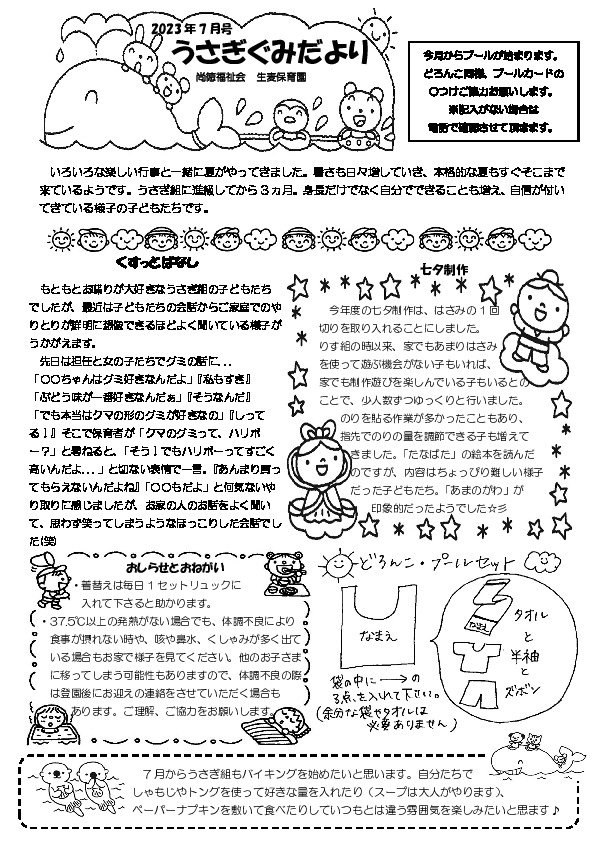 2023年7月号
うさぎぐみだより
尚徳福祉会　生麦保育園
今月からプールが始まります。
どろんこ同様、プールカードの
○つけご協力お願いします。
※記入がない場合は
電話で確認させて頂きます。
いろいろな楽しい行事と一緒に夏がやってきました。暑さも日々増していき、本格的な夏もすぐそこまで
来ているようです。うさぎ組に進級してから3ヵ月。身長だけでなく自分でできることも増え、自信が付い
てきている様子の子どもたちです。
くすっとばなし
もともとお喋りが大好きなうさぎ組の子どもたち
でしたが、最近は子どもたちの会話からご家庭でのや
りとりが鮮明に想像できるほどよく聞いている様子が
うかがえます。
先日は担任と女の子たちでグミの話に…
「○○ちゃんはグミ好きなんだよ」『私もすき』
「ぶどう味が一番好きなんだぁ」『そうなんだ』
「でも本当はクマの形のグミが好きなの」『しって
る！』そこで保育者が「クマのグミって、ハリボ
ー？」と尋ねると、「そう！でもハリボーってすごく
高いんだよ...」と切ない表情で一言。『あんまり買っ
てもらえないんだよね』「○○もだよ」と何気ないや
り取りに感じましたが、お家の人のお話をよく聞い
て、思わず笑ってしまうようなほっこりした会話でし
た(笑)
七夕制作
今年度の七夕制作は、はさみの1回
切りを取り入れることにしました。
りす組の時以来、家でもあまりはさみ
を使って遊ぶ機会がない子もいれば、
家でも制作遊びを楽しんでいる子もいるとの
ことで、少人数ずつゆっくりと行いました。
のりを貼る作業が多かったこともあり、
指先でのりの量を調節できる子も増えて
きました。「たなばた」の絵本を読んだ
のですが、内容はちょっぴり難しい様子
だった子どもたち。「あまのがわ」が
印象的だったようでした☆彡
おしらせとおねがい
・着替えは毎日1セットリュックに
入れて下さると助かります。
・37.5℃以上の発熱がない場合でも、体調不良により
食事が摂れない時や、咳や鼻水、くしゃみが多く出て
いる場合もお家で様子を見てください。他のお子さま
に移ってしまう可能性もありますので、体調不良の際
は登園後にお迎えの連絡をさせていただく場合も
あります。ご理解、ご協力をお願いします。
どろんこ・プールセット
なまえ
袋の中に→の
3点を入れて下さい。
(余分な袋やタオルは
必要ありません)
なまえ
タオル
と
半袖
と
ズボン
7月からうさぎ組もバイキングを始めたいと思います。自分たちで
しゃもじやトングを使って好きな量を入れたり（スープは大人がやります）、
ペーパーナプキンを敷いて食べたりしていつもとは違う雰囲気を楽しみたいと思ます♪